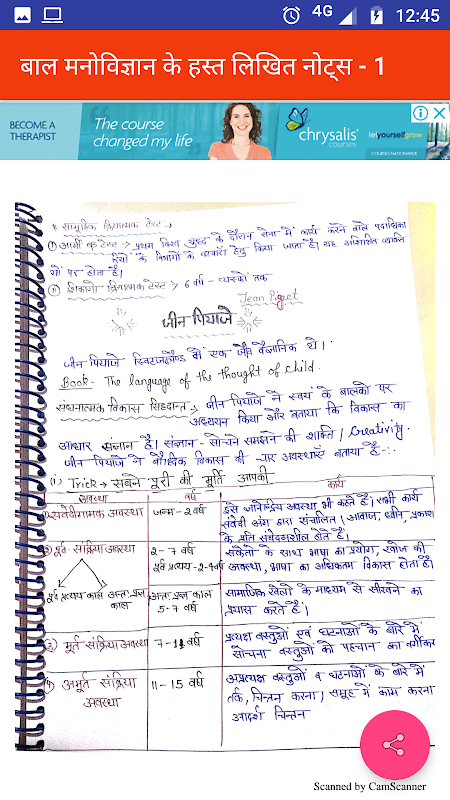 4G 12:45
बाल मनोविज्ञान के हस्त लिखित नोट्स - 1
BECOME A
THERAPIST
The course
changed my life
chrysalis
COURSES
letyourselfgrow
COURSES NATIONWIDE
* सामूहिक क्रियात्मक टेस्ट →
① आर्मी बीटा टेस्ट → प्रथम विश्व युद्ध के दौरान सेना में कार्य करने वाले पदाधिका
रियों के विभागों के बंटवारा हेतु किया जाता है। यह अशिक्षित व्यक्ति
यों पर होता है।
② शिकागो क्रियात्मक टेस्ट → 6 वर्ष - व्यस्कों तक
Jean Piaget
जीन पियाजे
जीन पियाजे स्विटजरलैण्ड के एक जीव वैज्ञानिक थे।
Book - The language of the thought of child.
संज्ञानात्मक विकास सिद्धान्त - जीन पियाजे ने स्वयं के बालकों पर
अध्ययन किया और बताया कि विकास का
आधार संज्ञान है। संज्ञान - सोचने समझने की शक्ति / Creativity.
जीन पियाजे ने बौद्धिक विकास की चार अवस्थाएँ बताया है -:
(i) Trick → सबने पूरी की मूर्ति आपकी
अवस्था वर्ष कार्य
① संवेदीगामक अवस्था जन्म - 2 वर्ष इसे ज्ञानेन्द्रिय अवस्था भी कहते हैं। सभी कार्य
संवेदी अंग द्वारा संचालित / आवाज, ध्वनि, प्रकाश
के प्रति संवेदनशील होते हैं।
② पूर्व - संक्रिया अवस्था 2 - 7 वर्ष संकेतों के साथ भाषा का प्रयोग, खोज की
पूर्व प्रत्यय - 2-4 वर्ष अवस्था, भाषा का अधिकतम विकास होता है।
पूर्व प्रत्यय काल अन्तः प्रज्ञ काल अन्तः प्रज्ञ काल सामाजिक खेलों के माध्यम से सीखने का
5-7 वर्ष प्रयास करते हैं।
③ मूर्त संक्रिया अवस्था 7 - 11 वर्ष प्रत्यक्ष वस्तुओं एवं घटनाओं के बारे में
सोचना वस्तुओं की पहचान का वर्गीकर
④ अमूर्त संक्रिया 11 - 15 वर्ष अप्रत्यक्ष वस्तुओं व घटनाओं के बारे में
अवस्था तर्क, चिन्तन करना / समूह में काम करना
आदर्श चिन्तन
Scanned by CamScanner